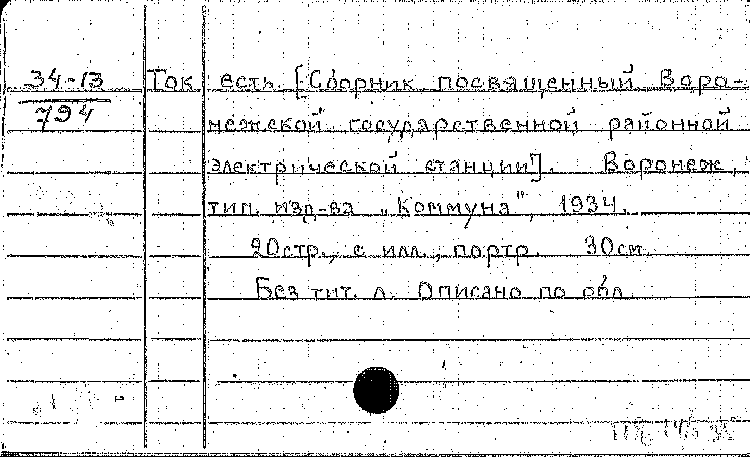 34-13
794
Ток есть. [Сборник посвященный Воро-
нежской государственной районной
электрической станции"]. Воронеж,
тип. изд-ва „Коммуна", 1934.
20стр., с илл., портр. 30см.
Без тит. л. Описано по обл.